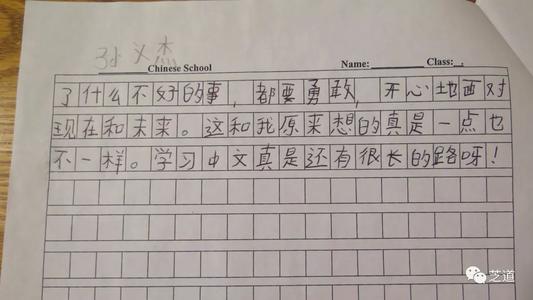 孙义杰
____________Chinese School Name: ____________ Class:__:
了什么不好的事，都要勇敢，开心地面对
现在和未来。这和我原来想的真是一点也
不一样。学习中文真是还有很长的路呀！
芝道